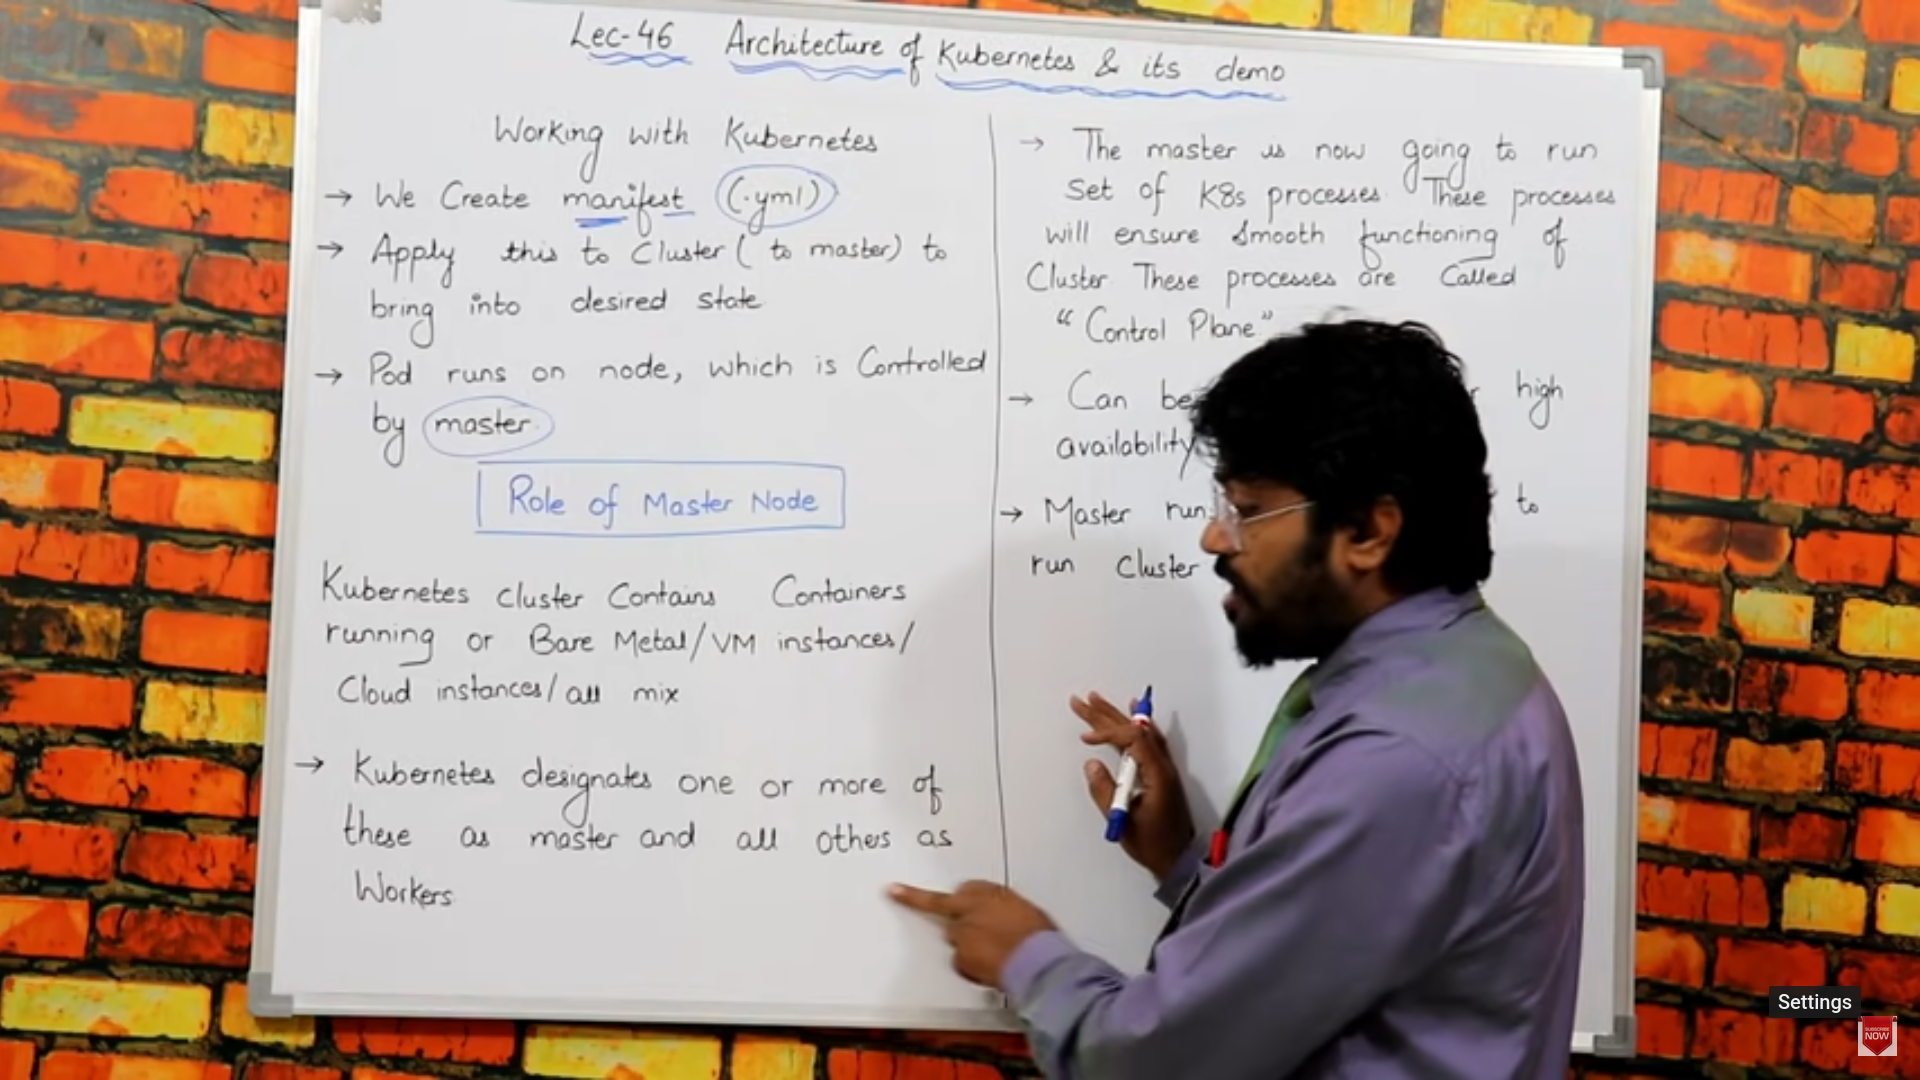 Lec-46 Architecture of Kubernetes & its demo
Working with Kubernetes
→ We Create manifest (.yml)
→ Apply this to Cluster (to master) to
bring into desired state
→ Pod runs on node, which is Controlled
by master.
Role of Master Node
Kubernetes cluster Contains Containers
running or Bare Metal/VM instances/
Cloud instances/all mix
→ Kubernetes designates one or more of
these as master and all others as
Workers
→ The master is now going to run
set of K8s processes. These processes
will ensure smooth functioning of
Cluster These processes are Called
"Control Plane"
→ Can be high
availability
→ Master run to
run cluster
Settings
SUBSCRIBE
NOW